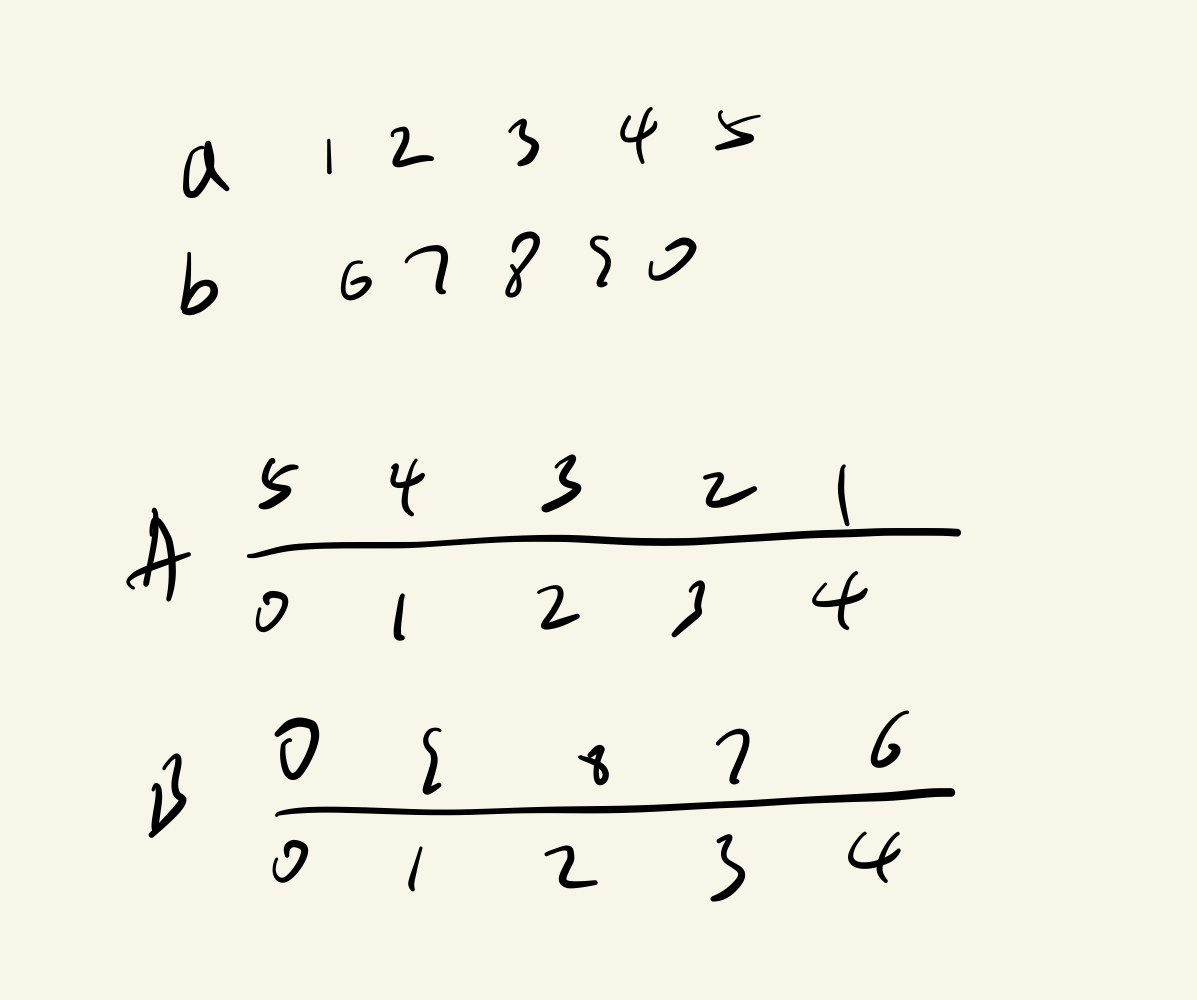 a 1 2 3 4 5
b 6 7 8 9 0
5 4 3 2 1
A
0 1 2 3 4
0 9 8 7 6
B
0 1 2 3 4